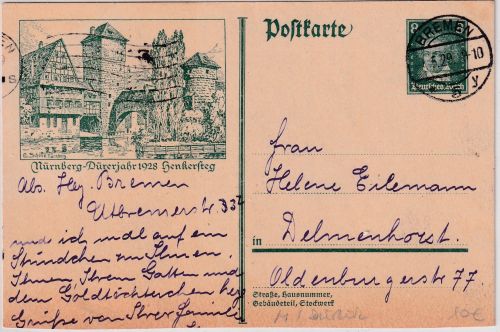 Postkarte
8
Deutsches Reich
BREMEN
9-10
y
Nürnberg-Dürerjahr 1928 Henkersteg
Abs. Hey. Bremen
Utbremerstr. 33
und ich mal auf ein
Stündchen zu Ihnen.
Ihnen, Ihrem Gatten und
dem Goldtöchterchen
Grüße von Ihrer Familie
Frau
Helene Eilemann
in Delmenhorst.
Oldenburgerstr 77
Straße, Hausnummer,
Gebäudeteil, Stockwerk